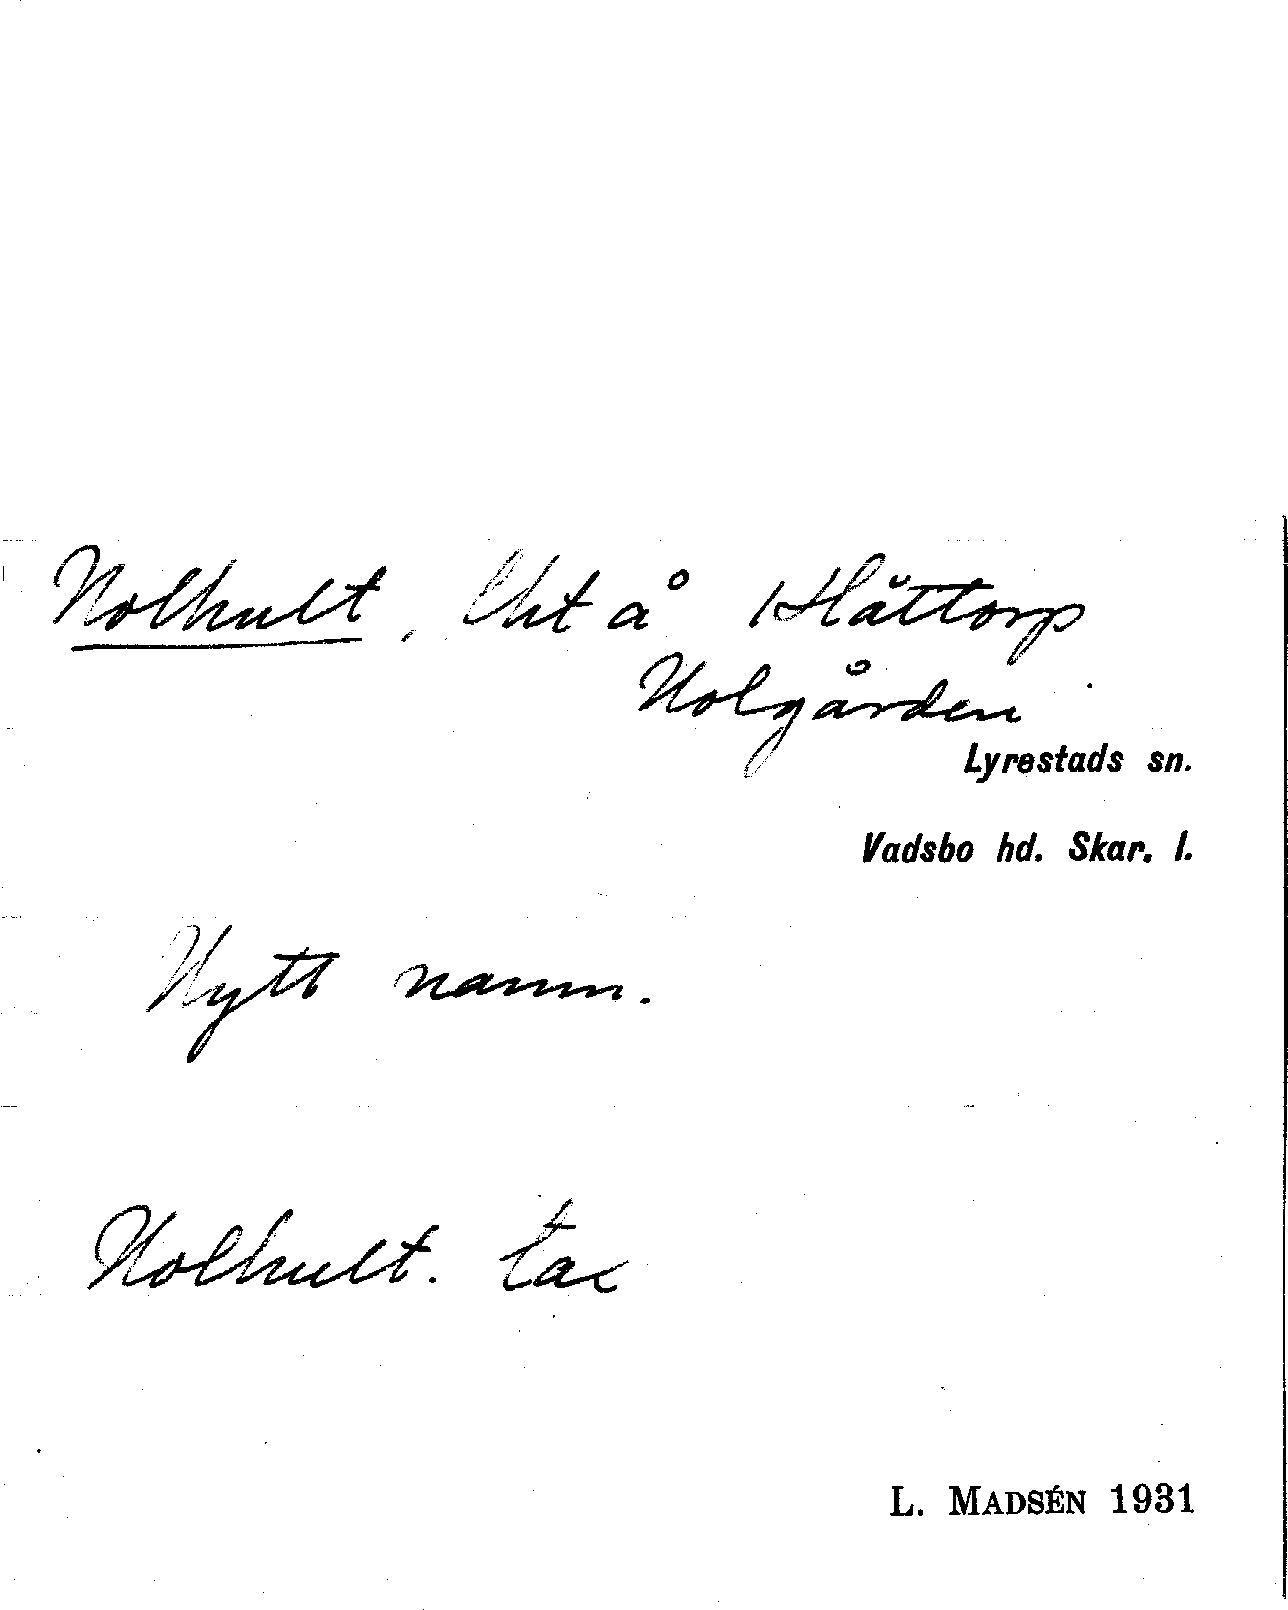 Nolhult, lht å Klåttorp
Nolgården
Lyrestads sn.
Vadsbo hd. Skar. l.
Nytt namn.
Nolhult. tax
L. MADSÉN 1931